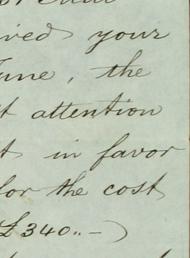 ived your
June, the
t attention
t in favor
for the cost
£340..-)